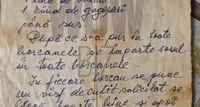 1 kună de
până sus
După ce s-a pus în toate
borcanele, se împarte sosul
în toate borcanele
În fiecare borcan se pune
un vârf de cuțit salicilat se
bine și apoi